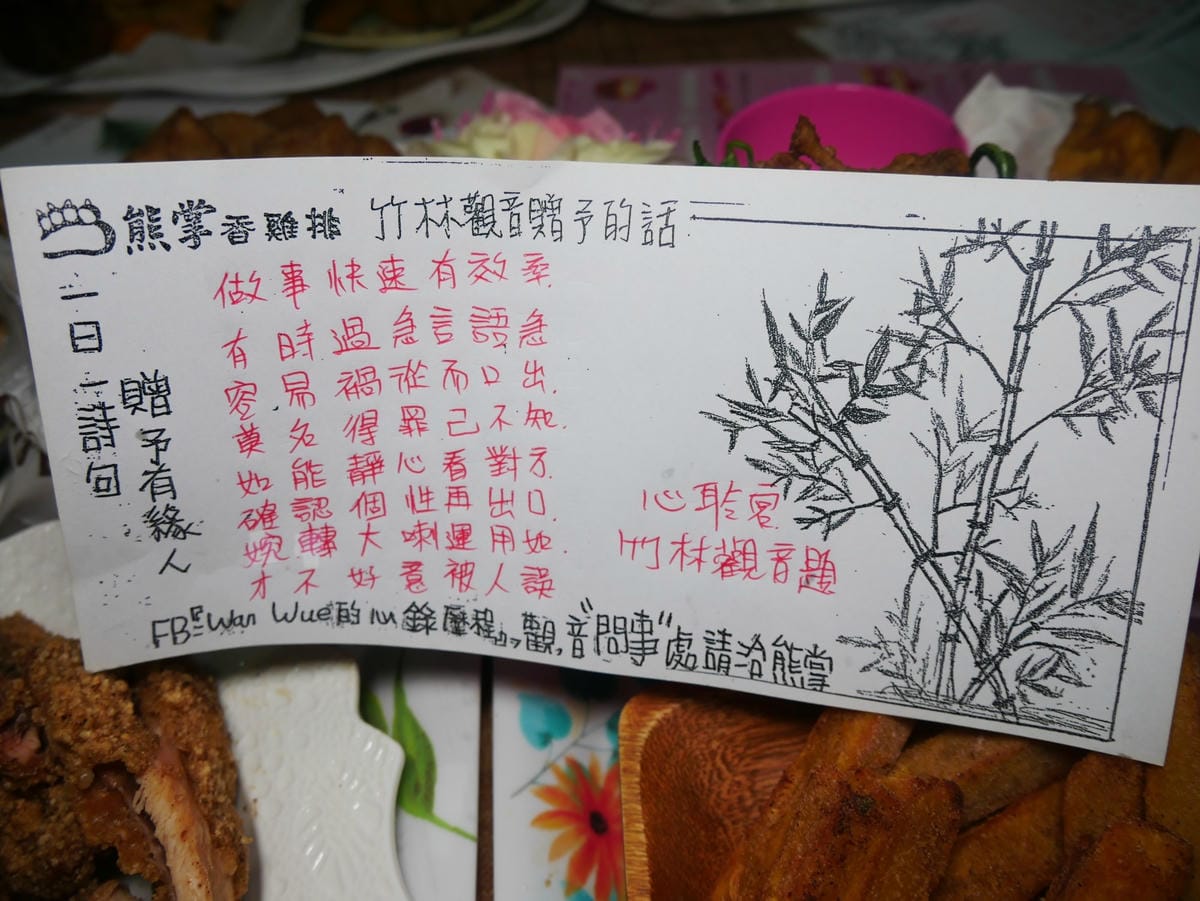 熊掌香雞排 竹林觀音贈予的話
一日一詩句
贈予有緣人
做事快速有效率
有時過急言語急
容易禍從而口出
莫名得罪己不知
如能靜心看對方
確認個性再出口
婉轉大喇運用如
才不好意被人誤
心聆宮
竹林觀音題
FB Wan Wue的心錄歷程 觀音"問事"處請洽熊掌